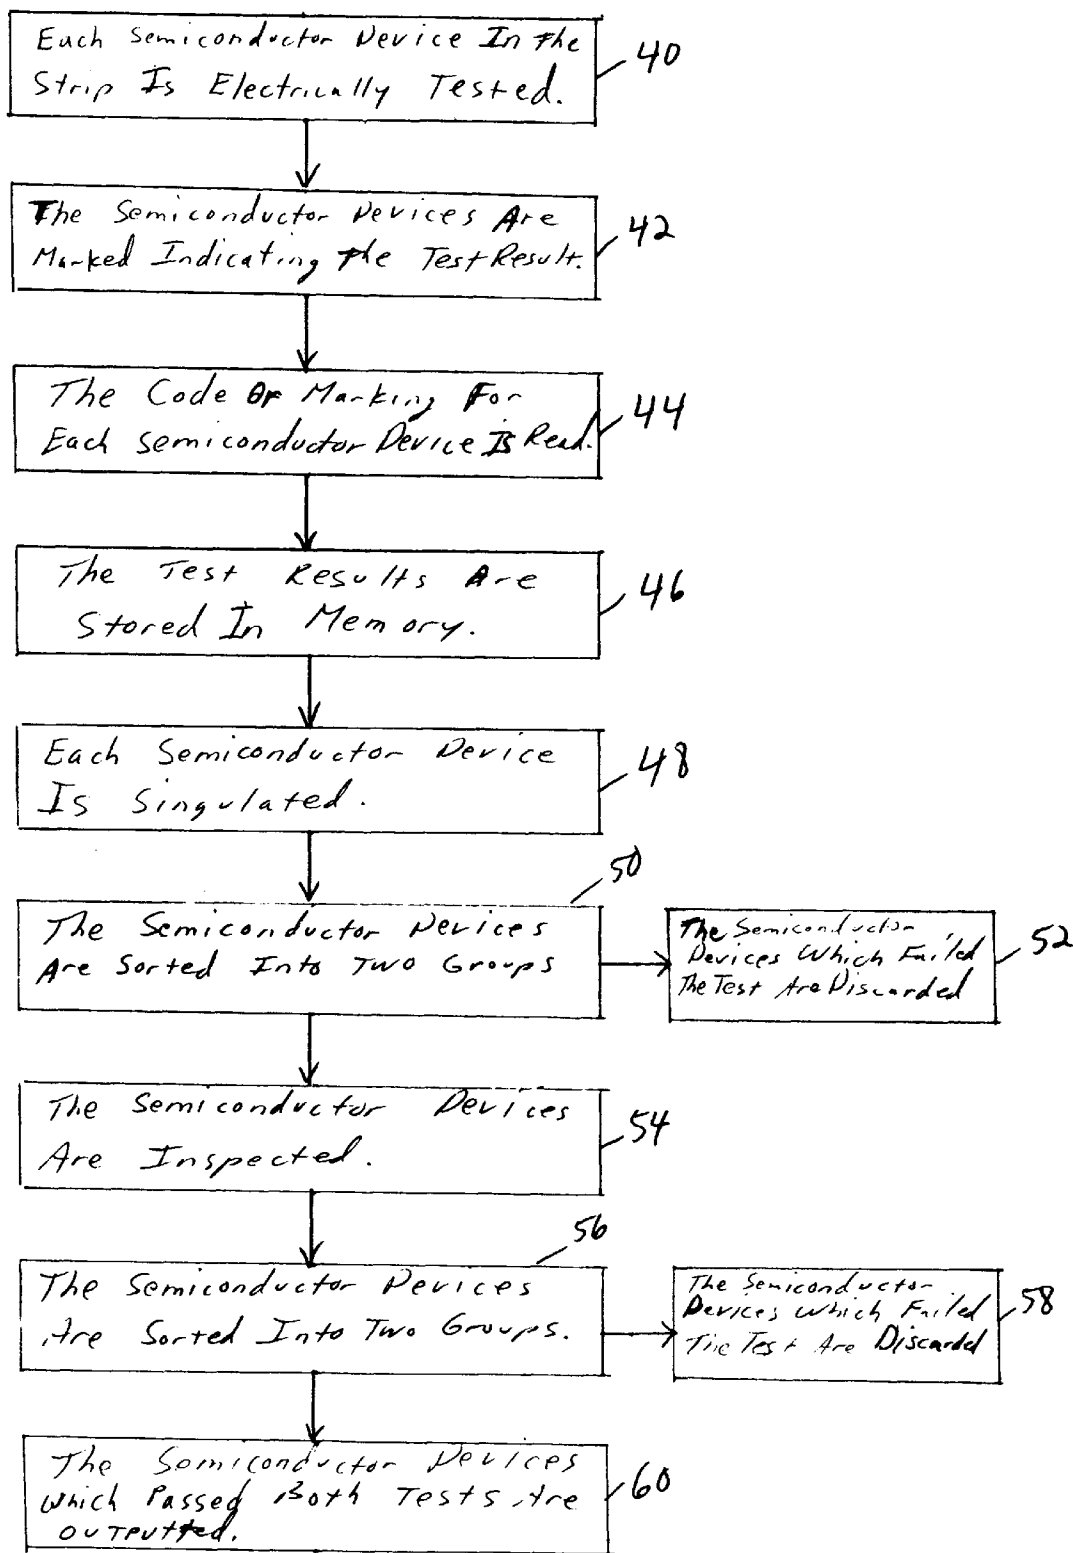 Each Semiconductor Device In The
Strip Is Electrically Tested.
40
The Semiconductor Devices Are
Marked Indicating The Test Result.
42
The Code Or Marking For
Each Semiconductor Device Is Read.
44
The Test Results Are
Stored In Memory.
46
Each Semiconductor Device
Is Singulated.
48
50
The Semiconductor Devices
Are Sorted Into Two Groups
The Semiconductor
Devices Which Failed
The Test Are Discarded
52
The Semiconductor Devices
Are Inspected.
54
56
The Semiconductor Devices
Are Sorted Into Two Groups.
The Semiconductor
Devices Which Failed
The Test Are Discarded
58
The Semiconductor Devices
Which Passed Both Tests Are
Outputted.
60